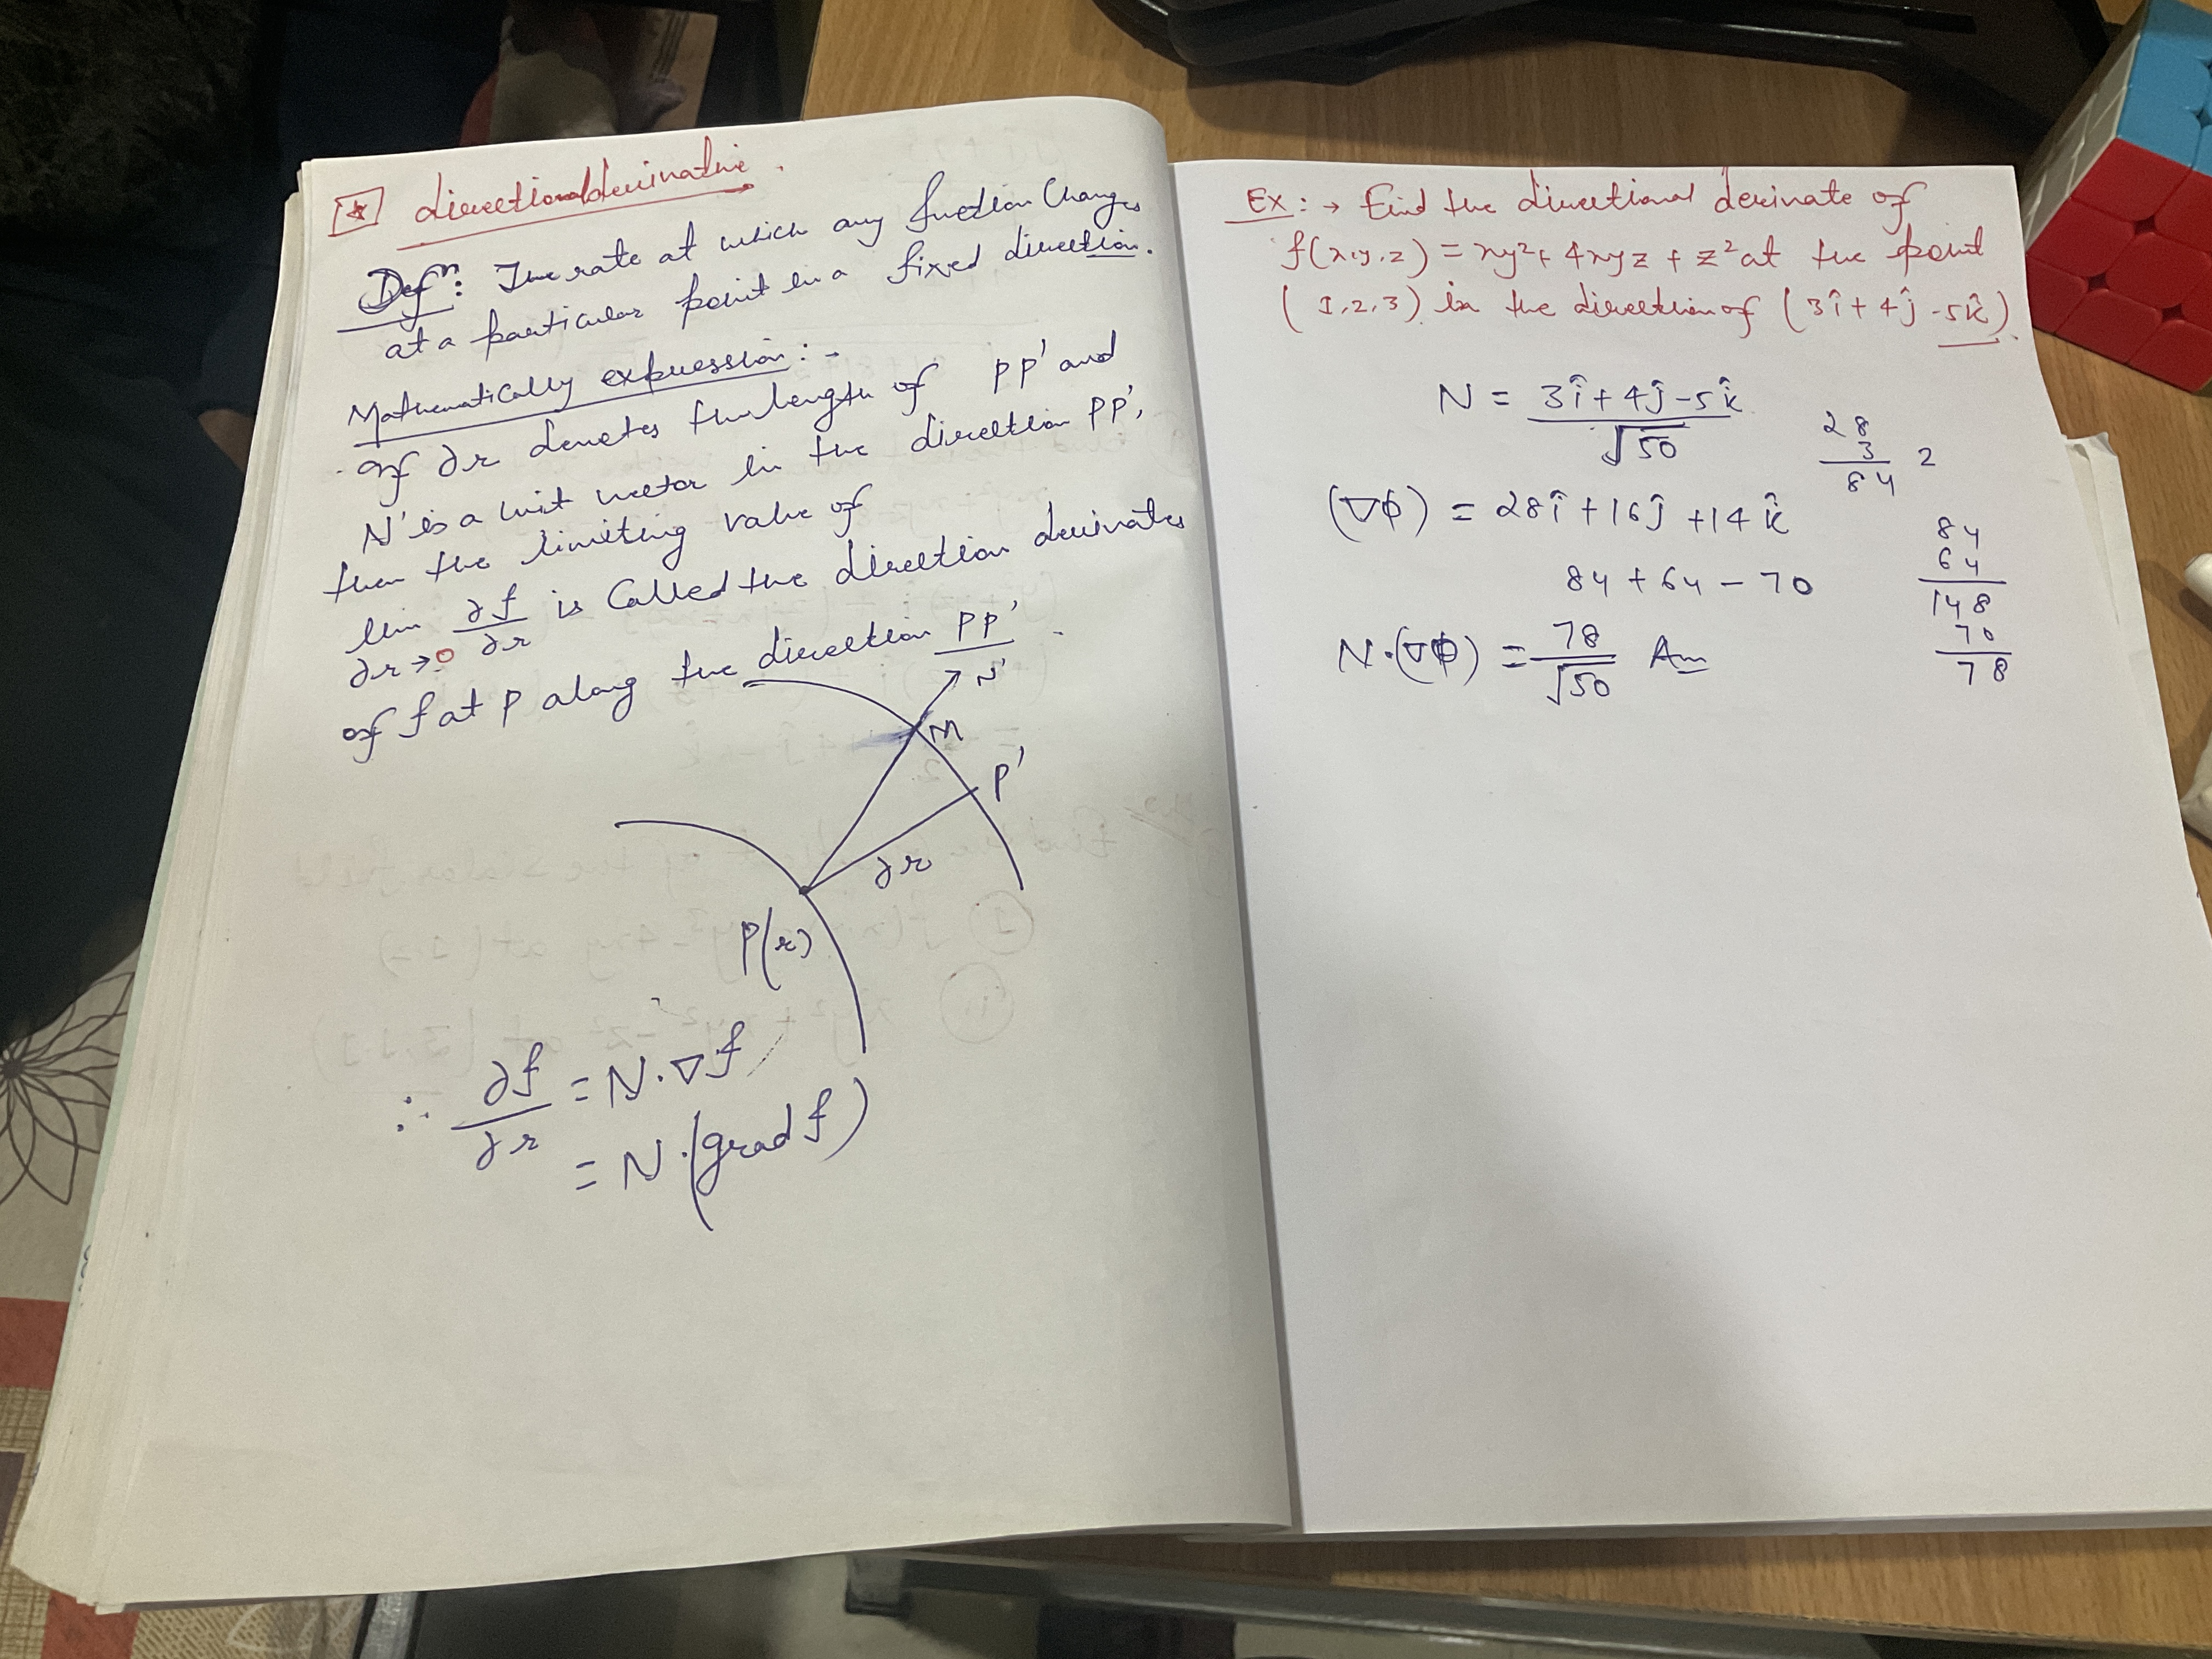 [*] directional derivative.
Defⁿ: The rate at which any function Changes
at a particular point in a fixed direction.
Mathematically expression:-
If ∂r denotes the length of PP' and
N' is a unit vector in the direction PP',
then the limiting value of
lim ∂r→0 ∂f/∂r is Called the direction derivates
of f at P along the direction PP'
N'
M
P'
∂r
P(r)
∴ ∂f/∂r = N·∇f
= N·(grad f)
Ex:→ Find the directional derivate of
f(x,y,z) = xy²+ 4xyz + z² at the point
(1,2,3) in the direction of (3î + 4ĵ -5k̂).
N = 3î + 4ĵ -5k̂ / √50
28
3
84 2
(∇Φ) = 28î + 16ĵ + 14k̂
84 + 64 - 70
84
64
148
70
78
N·(∇Φ) = 78/√50 Ans